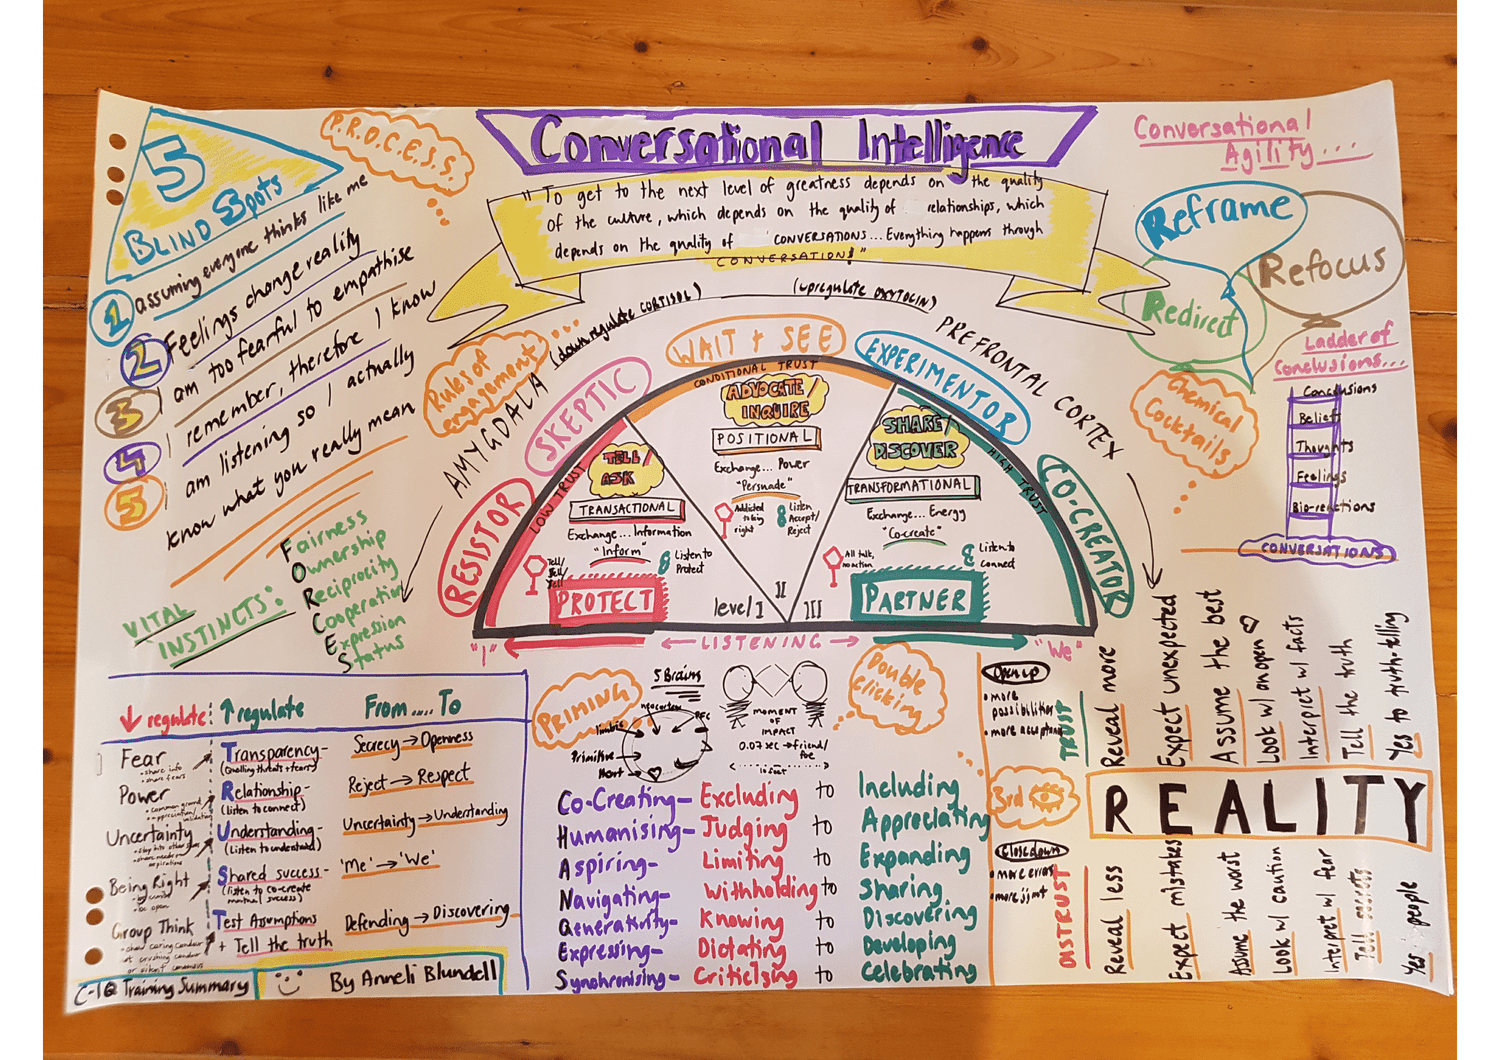 Conversational Intelligence
"To get to the next level of greatness depends on the quality
of the culture, which depends on the quality of relationships, which
depends on the quality of CONVERSATIONS... Everything happens through
CONVERSATIONS!"
5
BLIND Spots
1 assuming everyone thinks like me
2 Feelings change reality
3 am too fearful to empathise
4 I remember, therefore I know
5 I am listening so I actually
know what you really mean
P.R.O.C.E.S.S.
Rules of
engagement
VITAL
INSTINCTS:
Fairness
Ownership
Reciprocity
Cooperation
Expression
Status
AMYGDALA (down regulate CORTISOL)
(upregulate OXYTOCIN) PREFRONTAL CORTEX
RESISTOR
SKEPTIC
WAIT & SEE
EXPERIMENTOR
CO-CREATOR
LOW TRUST
CONDITIONAL TRUST
HIGH TRUST
TELL/
ASK
TRANSACTIONAL
Exchange... Information
"Inform"
Tell/
Sell/
Yell
Listen to
Protect
PROTECT
level I
ADVOCATE/
INQUIRE
POSITIONAL
Exchange... Power
"Persuade"
Addicted
to being
right
Listen
Accept/
Reject
II
SHARE/
DISCOVER
TRANSFORMATIONAL
Exchange... Energy
"Co-create"
All talk,
no action
Listen to
Connect
PARTNER
III
"I"
LISTENING
"We"
Conversational
Agility...
Reframe
Refocus
Redirect
Chemical
Cocktails
Ladder of
Conclusions...
Conclusions
Beliefs
Thoughts
Feelings
Bio-reactions
CONVERSATIONS
↓ regulate: ↑ regulate From..... To
Fear
• share info
• share fears
Power
• common ground
Uncertainty
Being Right
• be open
Group Think
Transparency-
(Quelling threats + fears)
Relationship-
(listen to connect)
Understanding-
(Listen to understand)
Shared success-
(listen to co-create
mutual success)
Test Assumptions
+ Tell the truth
Secrecy → Openness
Reject → Respect
Uncertainty → Understanding
'Me' → 'We'
Defending → Discovering
C-IQ Training Summary
By Anneli Blundell
PRIMING
5 Brains
neocortex
PFC
limbic
Primitive
Heart
MOMENT
OF
IMPACT
0.07 sec → friend/
foe
10 feet
Double
clicking
Co-Creating- Excluding to Including
Humanising- Judging to Appreciating
Aspiring- Limiting to Expanding
Navigating- Withholding to Sharing
Generativity- Knowing to Discovering
Expressing- Dictating to Developing
Synchronising- Criticising to Celebrating
Open up
• more
possibilities
• more acceptance
3rd
Close down
• more errors
• more jjmt
TRUST
Reveal more
Expect unexpected
Assume the best
Look w/ an open
Interpret w/ facts
Tell the truth
Yes to truth-telling
REALITY
DISTRUST
Reveal less
Expect mistakes
Assume the worst
Look w/ caution
Interpret w/ fear
Tell secrets
Yes people